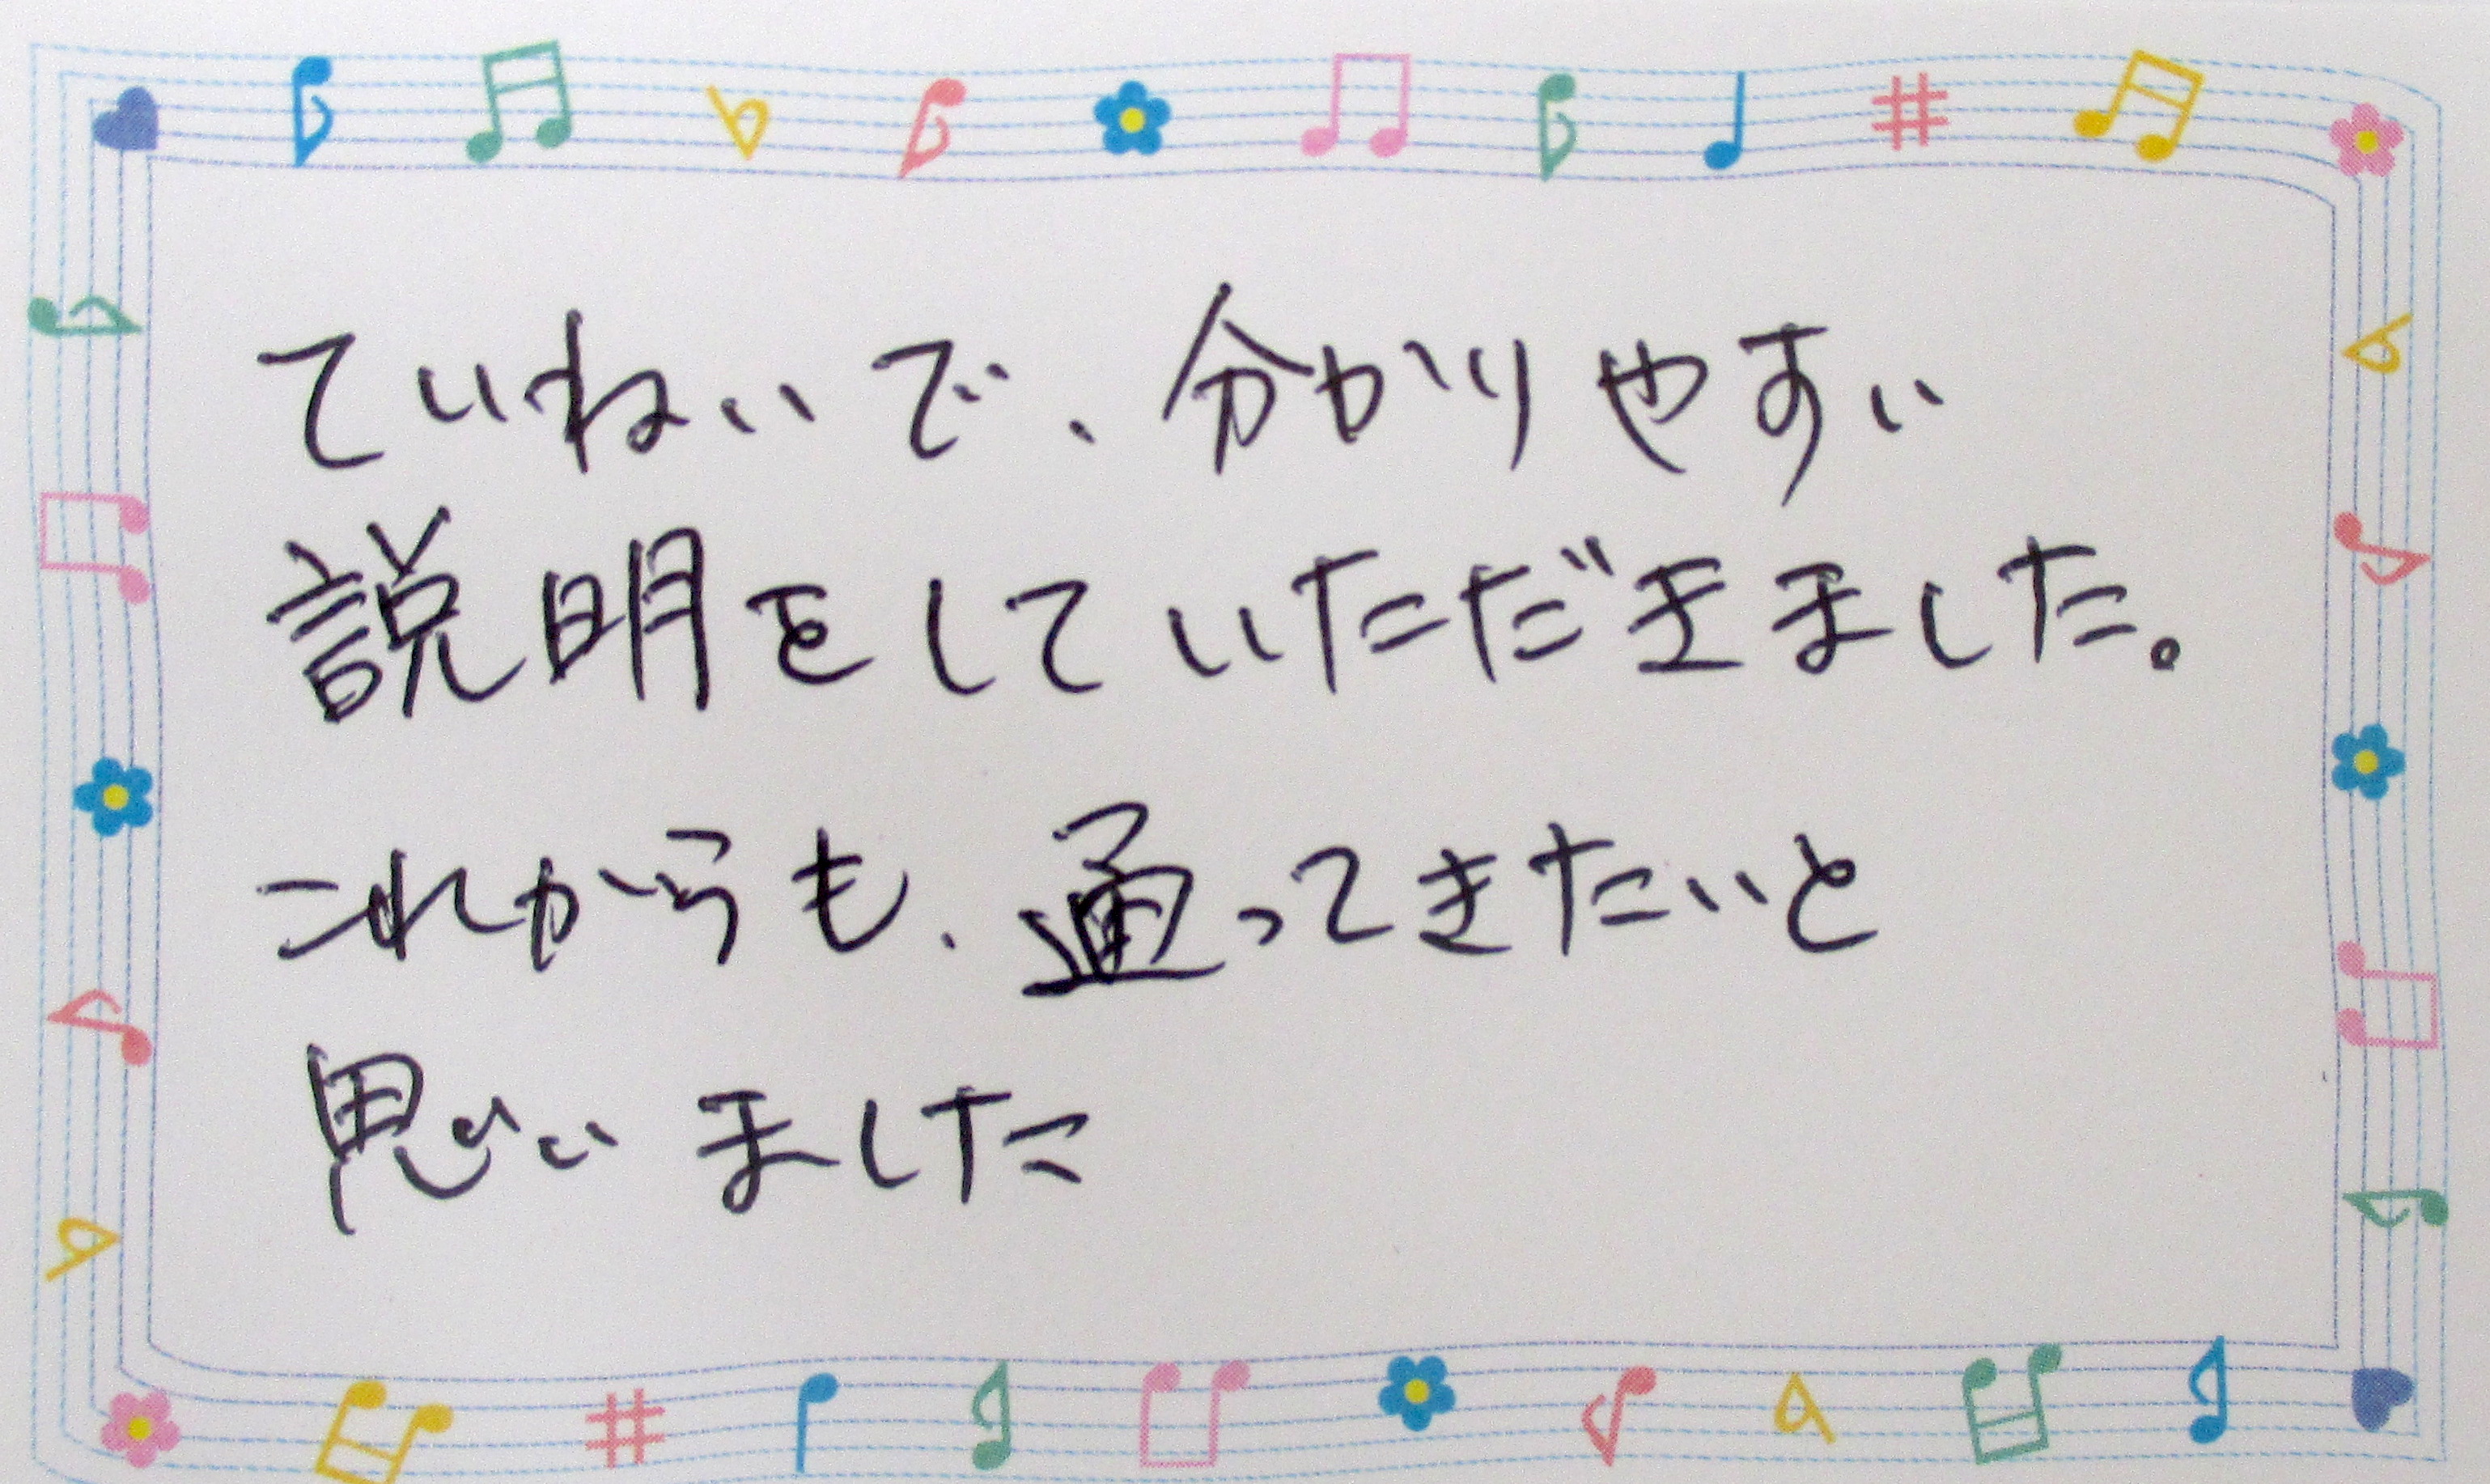 ていねいで、分かりやすい
説明をしていただきました。
これからも、通ってきたいと
思いました